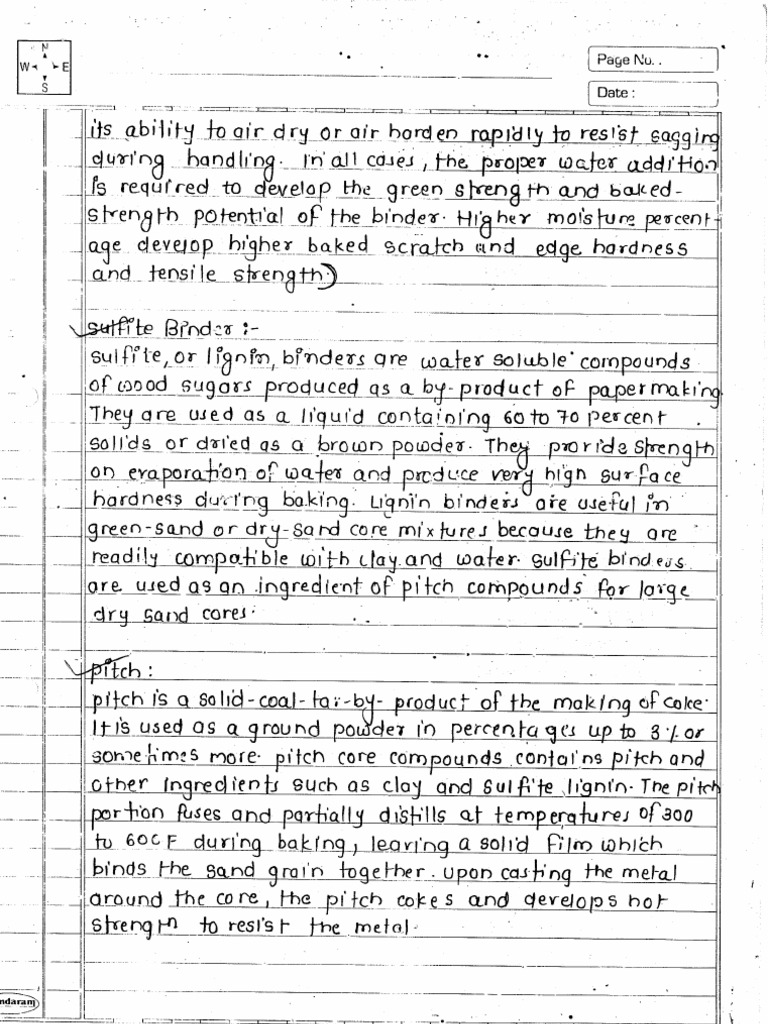 N
W E
S
Page No. .
Date :
its ability to air dry or air harden rapidly to resist sagging
during handling. In all cases, the proper water addition
is required to develop the green strength and baked-
strength potential of the binder. Higher moisture percent-
age develop higher baked scratch and edge hardness
and tensile strength.)
Sulfite Binder :-
sulfite, or lignin, binders are water soluble compounds
of wood sugars produced as a by-product of papermaking.
They are used as a liquid containing 60 to 70 percent
solids or dried as a brown powder. They provide strength
on evaporation of water and produce very high surface
hardness during baking. Lignin binders are useful in
green-sand or dry-sand core mixtures because they are
readily compatible with clay and water. sulfite binders
are used as an ingredient of pitch compounds for large
dry sand cores.
pitch :
pitch is a solid-coal-tar-by-product of the making of coke.
It is used as a ground powder in percentages up to 3% or
sometimes more. pitch core compounds contains pitch and
other ingredients such as clay and sulfite lignin. The pitch
portion fuses and partially distills at temperatures of 300
to 600 F during baking, leaving a solid film which
binds the sand grain together. upon casting the metal
around the core, the pitch cokes and develops hot
strength to resist the metal.
ndaram